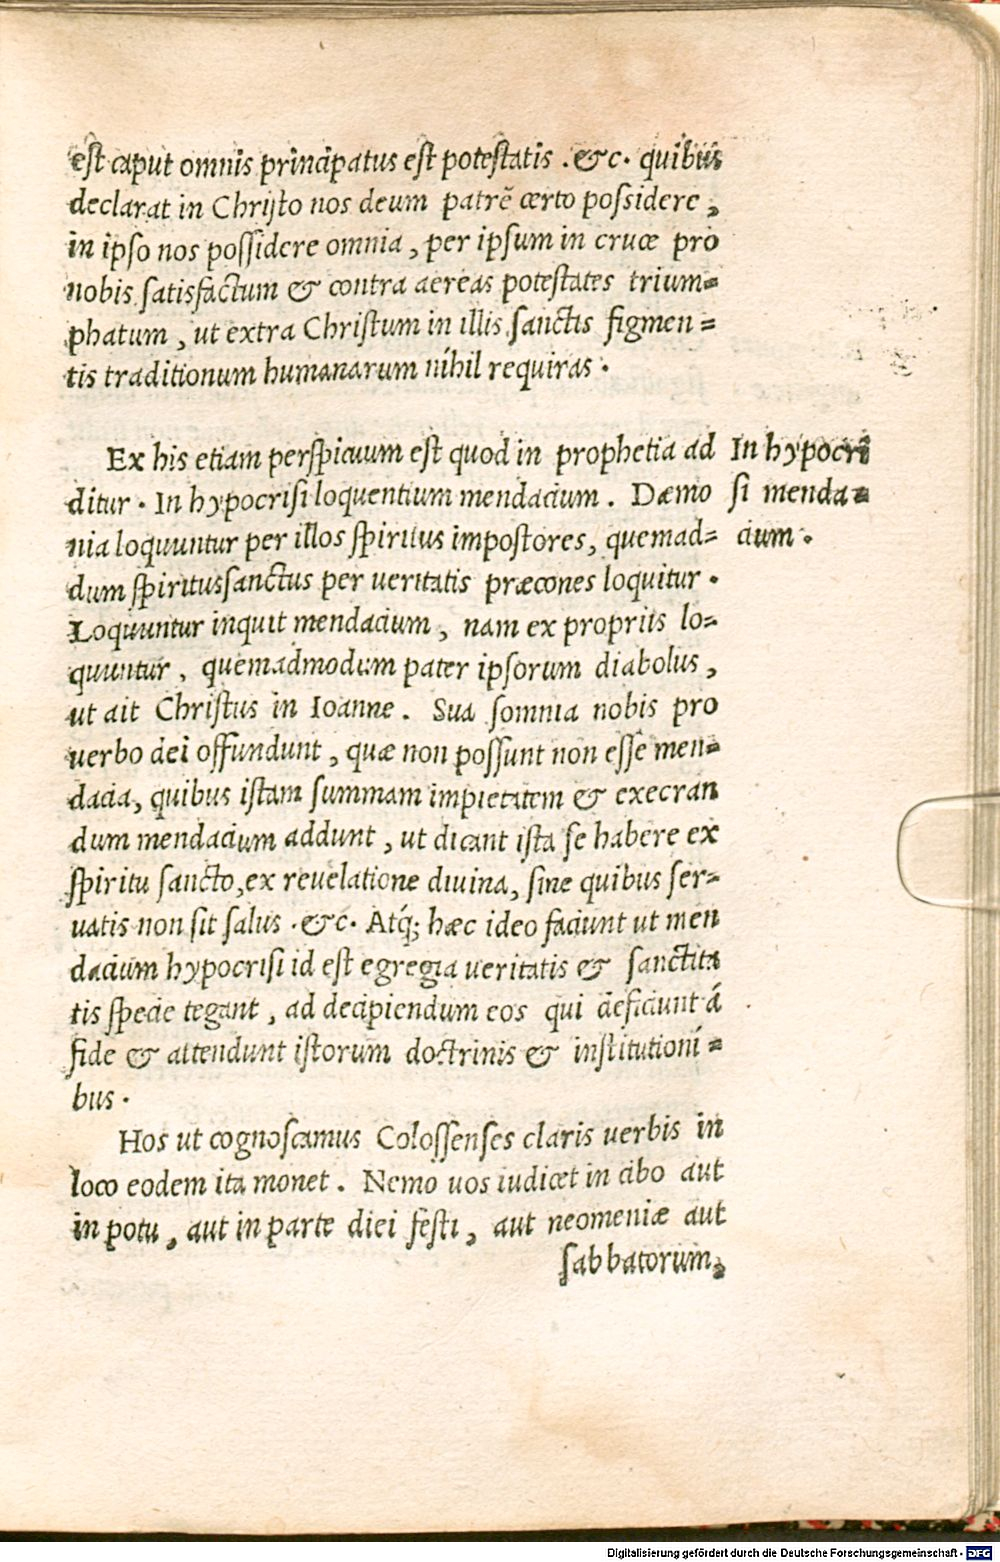 est caput omnis principatus est potestatis . &c. quibus
declarat in Christo nos deum patrẽ certo possidere,
in ipso nos possidere omnia, per ipsum in cruce pro
nobis satisfactum & contra aereas potestates trium=
phatum, ut extra Christum in illis sanctis figmen=
tis traditionum humanarum nihil requiras.
Ex his etiam perspicuum est quod in prophetia ad
ditur. In hypocrisi loquentium mendacium. Dæmo
nia loquuntur per illos spiritus impostores, quemad=
dum spiritussanctus per ueritatis præcones loquitur.
Loquuntur inquit mendacium, nam ex propriis lo=
quuntur, quemadmodum pater ipsorum diabolus,
ut ait Christus in Ioanne. Sua somnia nobis pro
uerbo dei offundunt, quæ non possunt non esse men=
dacia, quibus istam summam impietatem & execran
dum mendacium addunt, ut dicant ista se habere ex
spiritu sancto, ex reuelatione diuina, sine quibus ser=
uatis non sit salus . &c. Atq́; hæc ideo faciunt ut men
dacium hypocrisi id est egregia ueritatis & sanctita
tis specie tegant, ad decipiendum eos qui deficiunt á
fide & attendunt istorum doctrinis & institutioni=
bus.
Hos ut cognoscamus Colossenses claris uerbis in
loco eodem ita monet. Nemo uos iudicet in cibo aut
in potu, aut in parte diei festi, aut neomeniæ aut
sabbatorum,
In hypocri
si menda=
cium.
Digitalisierung gefördert durch die Deutsche Forschungsgemeinschaft - DFG